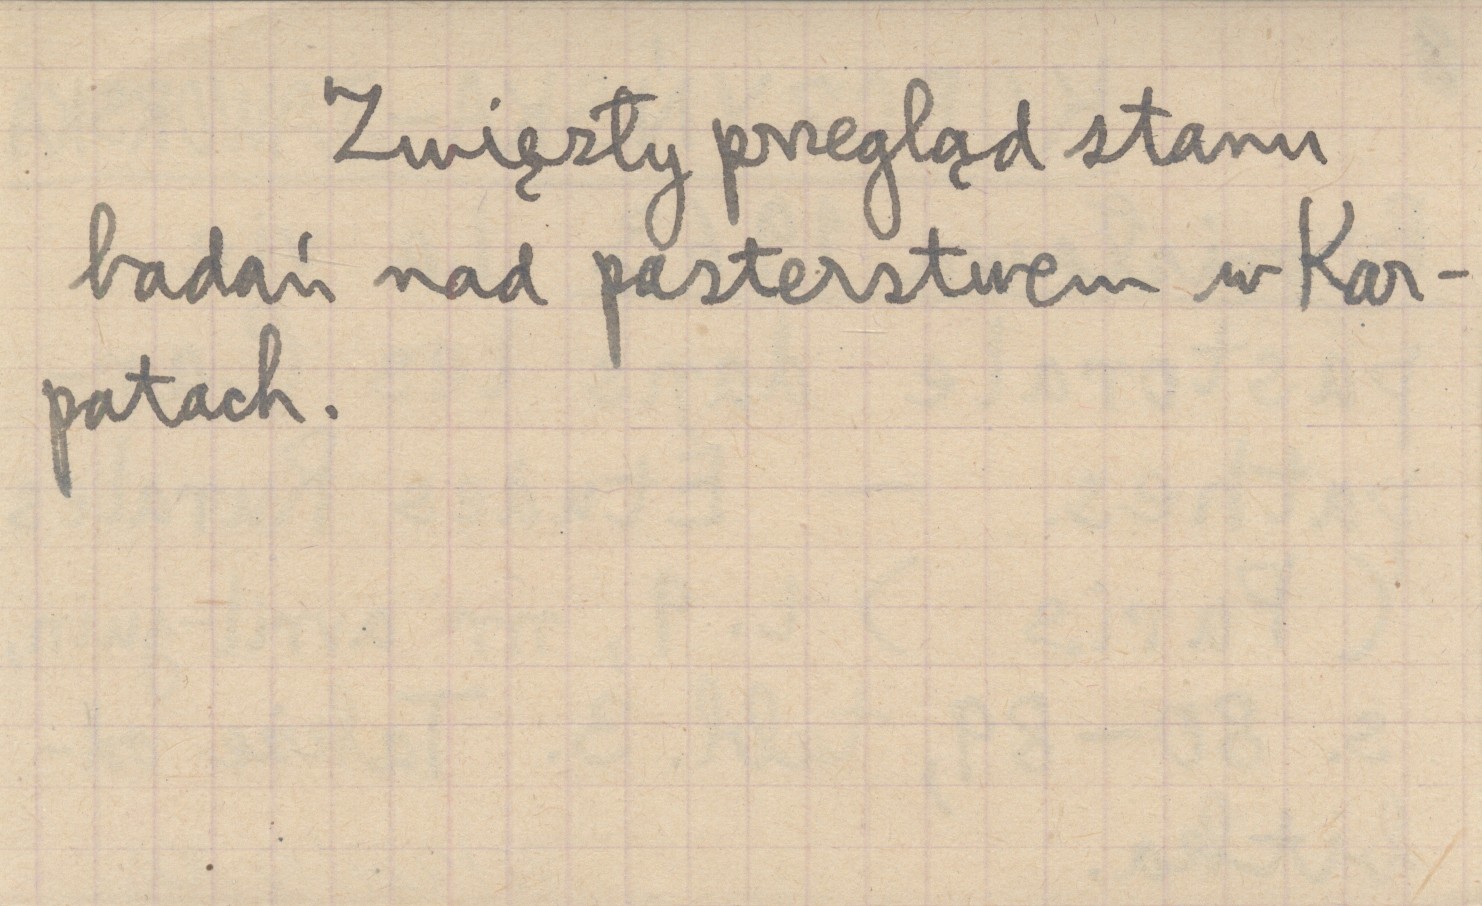 Zwięzły przegląd stanu
badań nad pasterstwem w Kar-
patach.